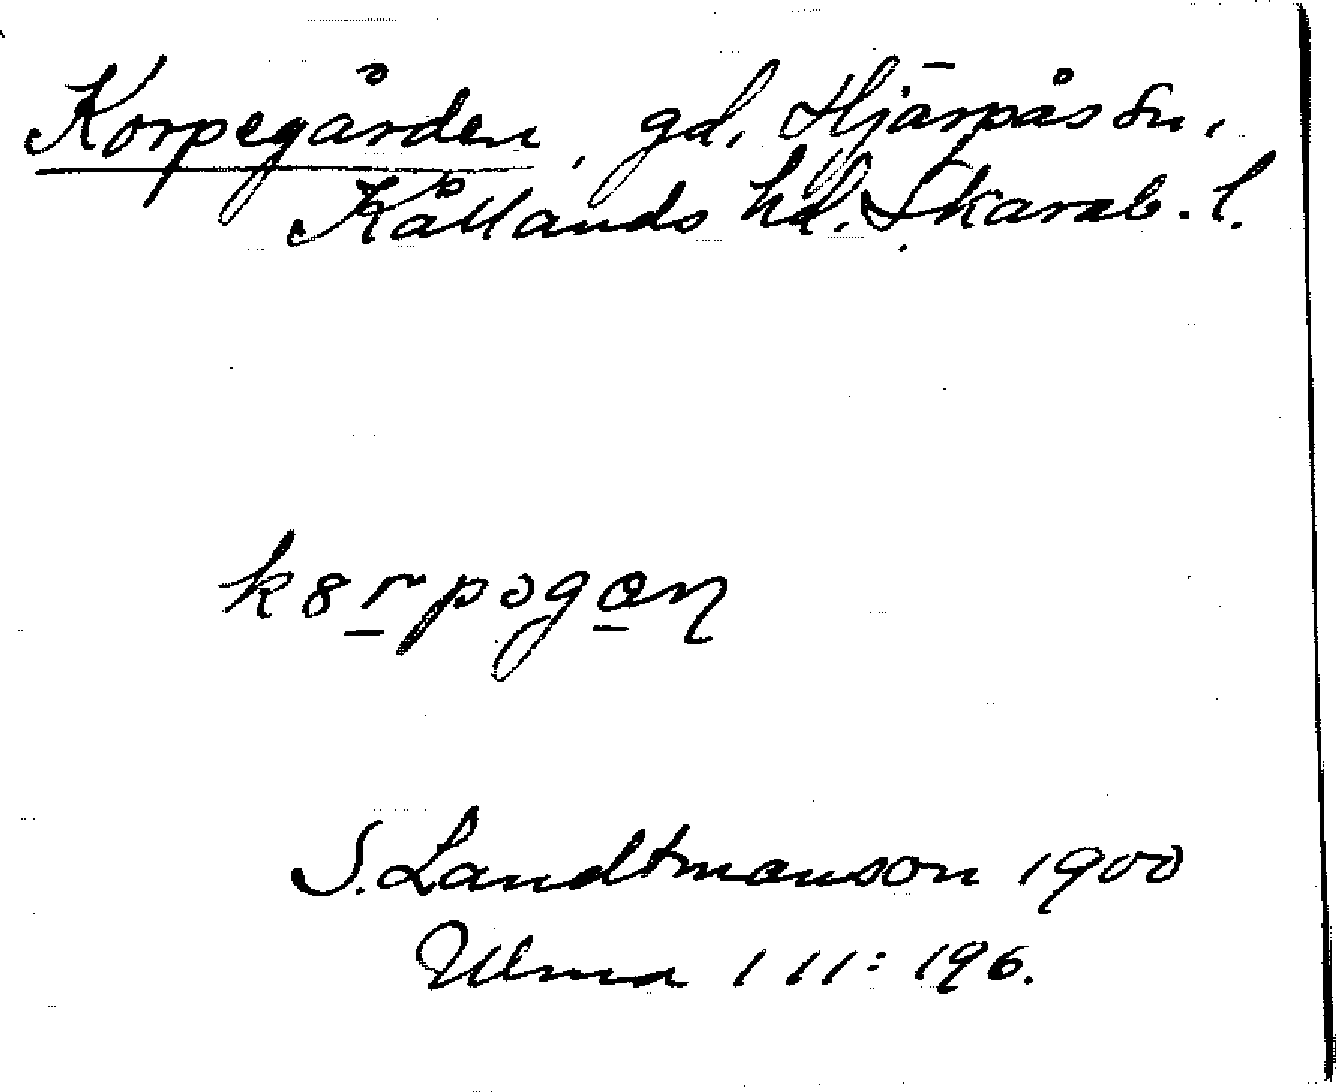 Korpegården, gd, Hjärpås sn,
Kållands hd. Skarab. l.
k8rpəgan
S. Landtmanson 1900
Ulma 111:196.